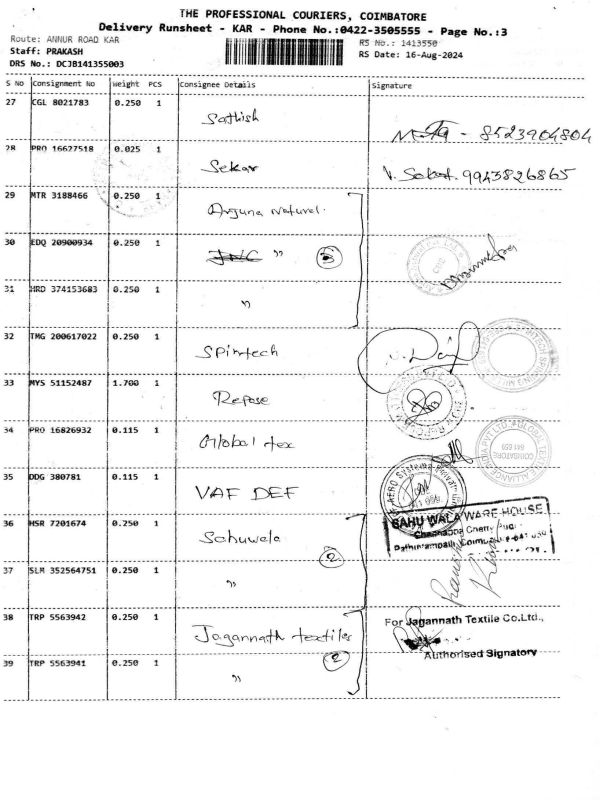 THE PROFESSIONAL COURIERS, COIMBATORE
Delivery Runsheet - KAR - Phone No.:0422-3505555 - Page No.:3
Route: ANNUR ROAD KAR
RS No.: 1413550
Staff: PRAKASH
RS Date: 16-Aug-2024
DRS No.: DCJB141355003
S No Consignment No Weight PCS Consignee Details Signature
27 CGL 8021783 0.250 1 Sathish 8523904804
28 PRO 16627518 0.025 1 Sekar 9943826865
29 MTR 3188466 0.250 1 Arjuna Natural
30 EDQ 20900934 0.250 1 " 3
31 HRD 374153683 0.250 1 "
32 TMG 200617022 0.250 1 Spintech
33 MYS 51152487 1.700 1 Repose
34 PRO 16826932 0.115 1 Global tex
35 DDG 380781 0.115 1 VAF DEF
36 MSR 7201674 0.250 1 Sahuwala 2
SAHU WALA WARE HOUSE
37 SLM 352564751 0.250 1 "
38 TRP 5563942 0.250 1 Jagannath textiles 2
For Jagannath Textile Co.Ltd.,
Authorised Signatory
39 TRP 5563941 0.250 1 "